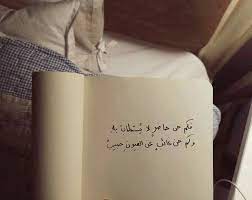 فكم من حاضرٍ لا يُستلذُّ به
وكم من غائبٍ عن العيونِ حبيبُ